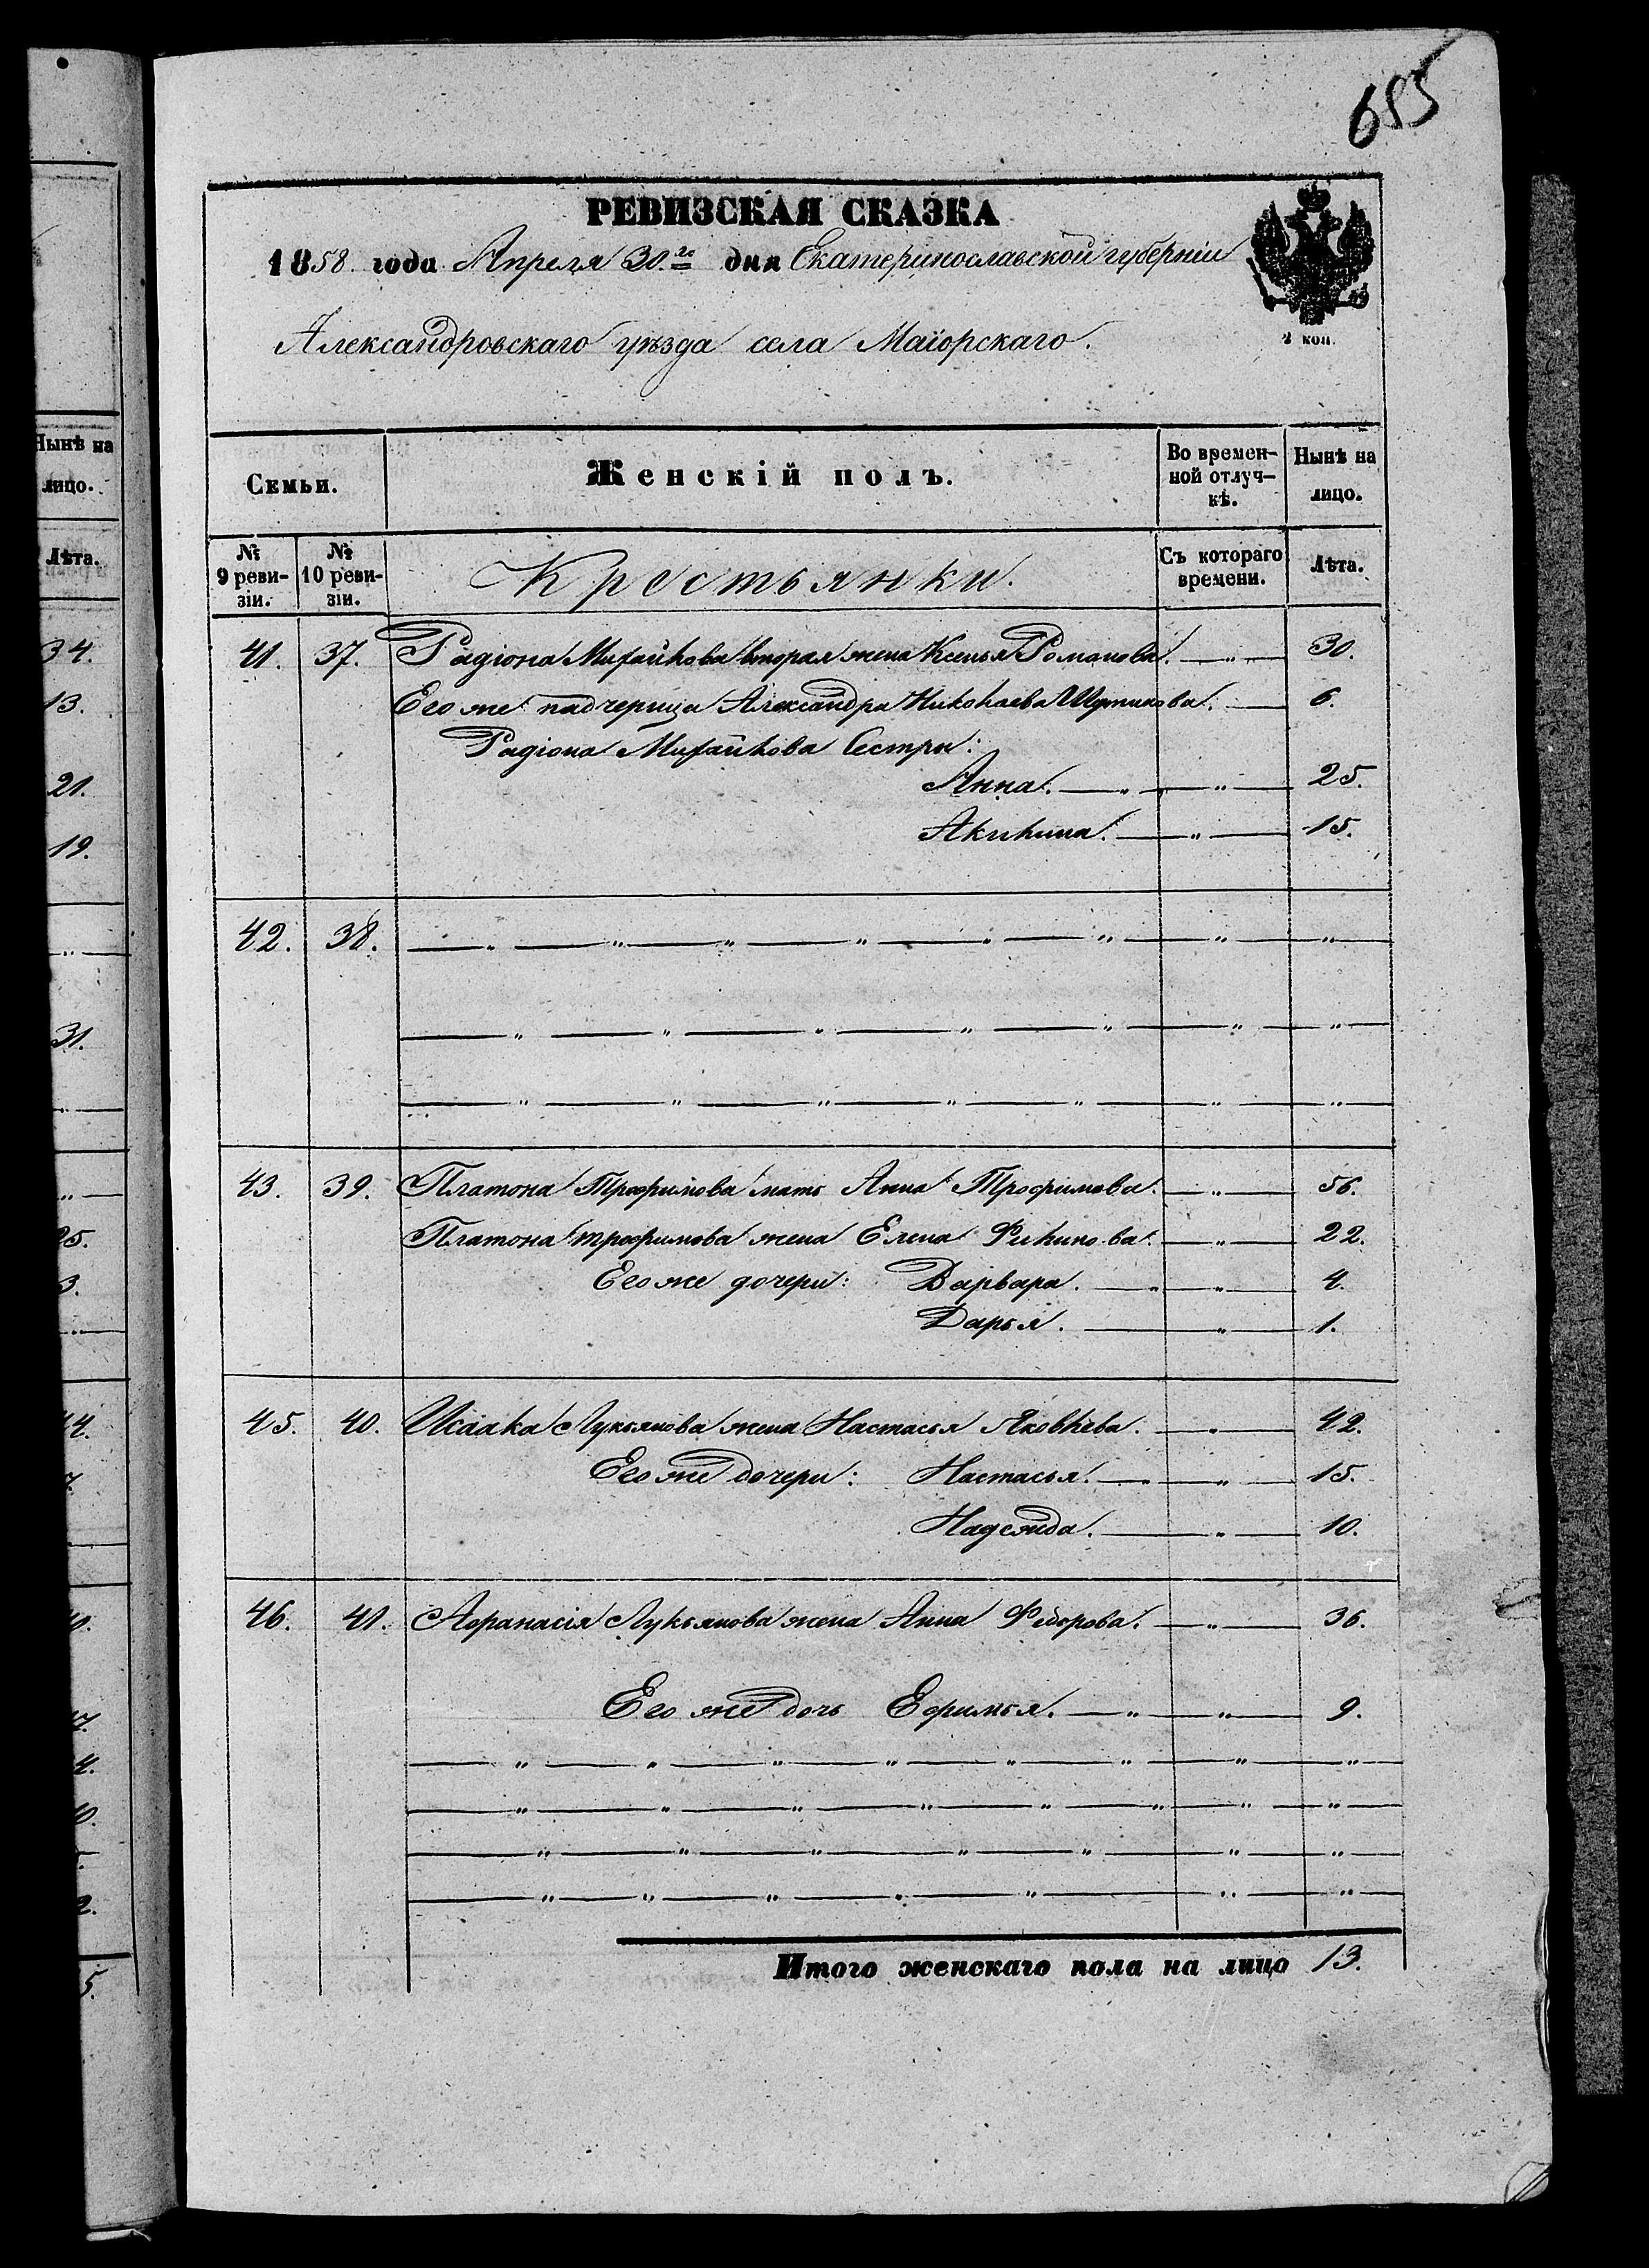 655
РЕВИЗСКАЯ СКАЗКА
1858 года Апреля 30.го дня Екатеринославской губерніи
Александровскаго уѣзда села Маіорскаго.
2 коп.
Семьи. Женскій полъ. Во времен-ной отлуч-кѣ. Нынѣ на лицо.
№ 9 реви-зіи. № 10 реви-зіи. Крестьянки. Съ котораго времени. Лѣта.
41. 37. Радіона Михайлова вторая жена Ксенья Романова. — „ — 30.
Его же падчерица Александра Николаева Шутикова. — 6.
Радіона Михайлова Сестры:
Анна. — „ — „ — 25.
Акилина. — „ — 15.
42. 38. — „ — „ — „ — „ — „ — „ — „ — „ —
— „ — „ — „ — „ — „ — „ — „ —
— „ — „ — „ — „ — „ — „ — „ —
43. 39. Платона Трофимова мать Анна Трофимова. — „ — 56.
Платона Трофимова жена Елена Филипова. — „ — 22.
Его же дочери: Варвара. — „ — „ — 4.
Дарья. — „ — 1.
45. 40. Исаака Лукьянова жена Настасья Яковлева. — „ — 42.
Его же дочери: Настасья. — „ — „ — 15.
Надежда. — „ — 10.
46. 41. Афанасія Лукьянова жена Анна Федорова. — „ — 36.
Его же дочь Ефимья. — „ — „ — 9.
— „ — „ — „ — „ — „ — „ — „ — „ —
— „ — „ — „ — „ — „ — „ — „ — „ —
— „ — „ — „ — „ — „ — „ — „ —
— „ — „ — „ — „ — „ — „ — „ —
Итого женскаго пола на лицо 13.
Нынѣ на
лицо.
Лѣта.
34.
13.
21.
19.
31.